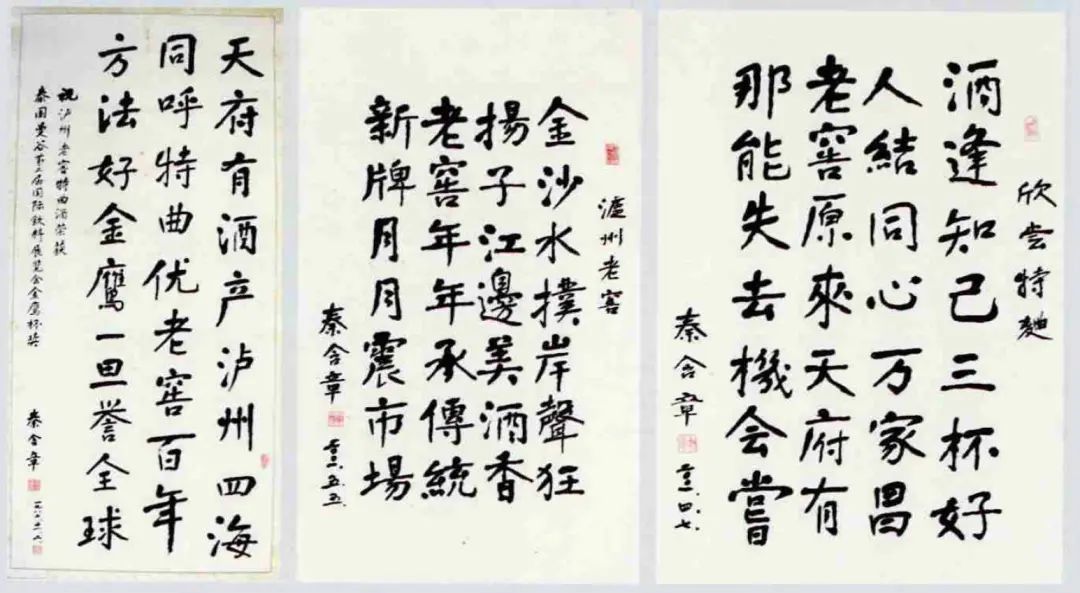 天府有酒产泸州四海
同呼特曲优老窖百年
方法好金鹰一旦誉全球
祝泸州老窖特曲酒荣获
泰国曼谷第三届国际饮料展览会金鹰杯奖
秦含章
瀘州老窖
金沙水撲岸聲狂
揚子江邊美酒香
老窖年年承傳統
新牌月月震市場
秦含章
五.五.
欣尝特麯
酒逢知己三杯好
人結同心万家昌
老窖原來天府有
那能失去機会嘗
秦含章
四.七.